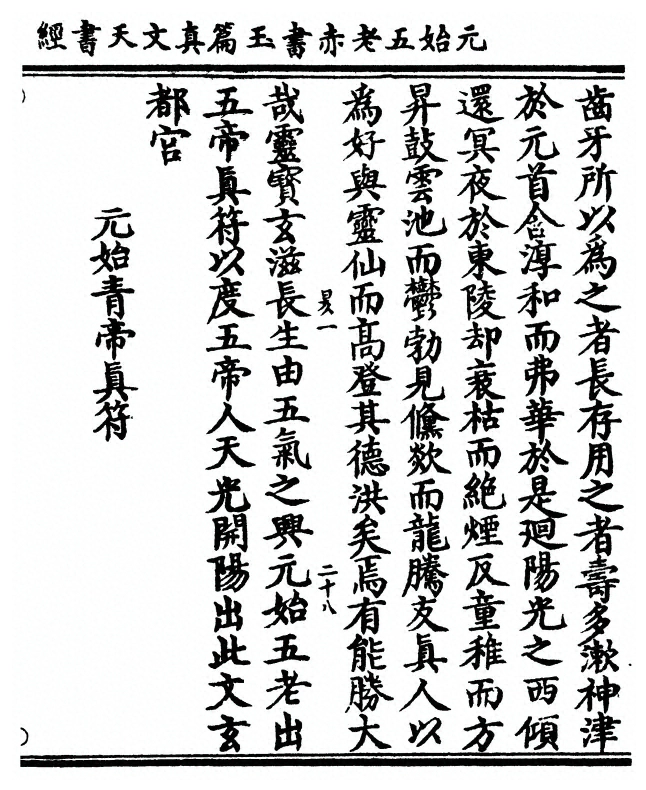 元始五老赤書玉篇真文天書經
齒牙所以為之者長存用之者壽多漱神津
於元首含淳和而弗華於是廻陽光之西傾
還冥夜於東陵却衰枯而絶煙反童稚而方
昇鼓雲池而欎勃見儵欻而龍騰友真人以
為好與靈仙而髙登其德洪矣焉有能勝大
昃一
二十八
哉靈寶玄滋長生由五氣之興元始五老出
五帝真符以度五帝人天光開陽出此文玄
都宮
元始青帝真符